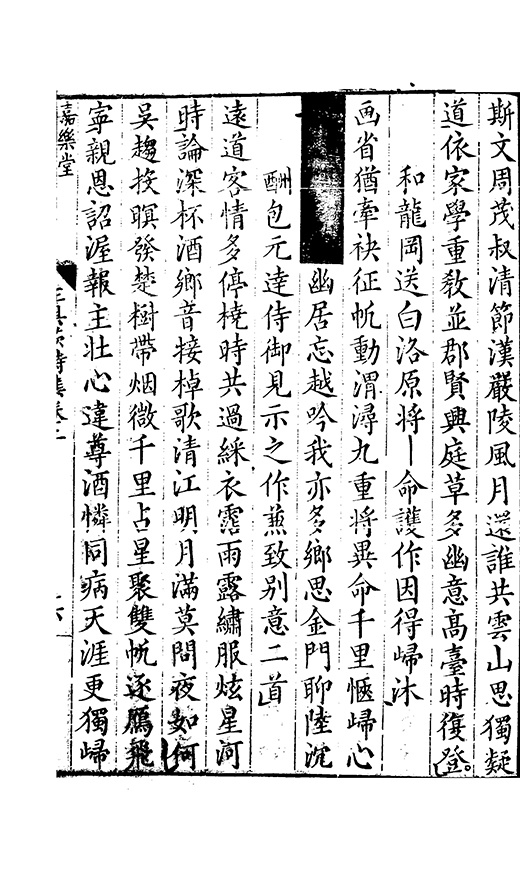 斯文周茂叔清節漢嚴陵風月還誰共雲山思獨凝
道依家學重教並郡賢興庭草多幽意高臺時復登
和龍岡送白洛原將命護作因得歸沐
画省猶牽袂征帆動渭潯九重將異命千里愜歸心
幽居忘越吟我亦多鄉思金門聊陸沉
酬包元達侍御見示之作兼致别意二首
遠道客情多停橈時共過綵衣霑雨露繡服炫星河
時論深杯酒鄉音接棹歌清江明月滿莫問夜如何
吳趨投暝發楚樹帶烟微千里占星聚雙帆逐鴈飛
寜親恩詔渥報主壯心違尊酒憐同病天涯更獨歸
嘉樂堂